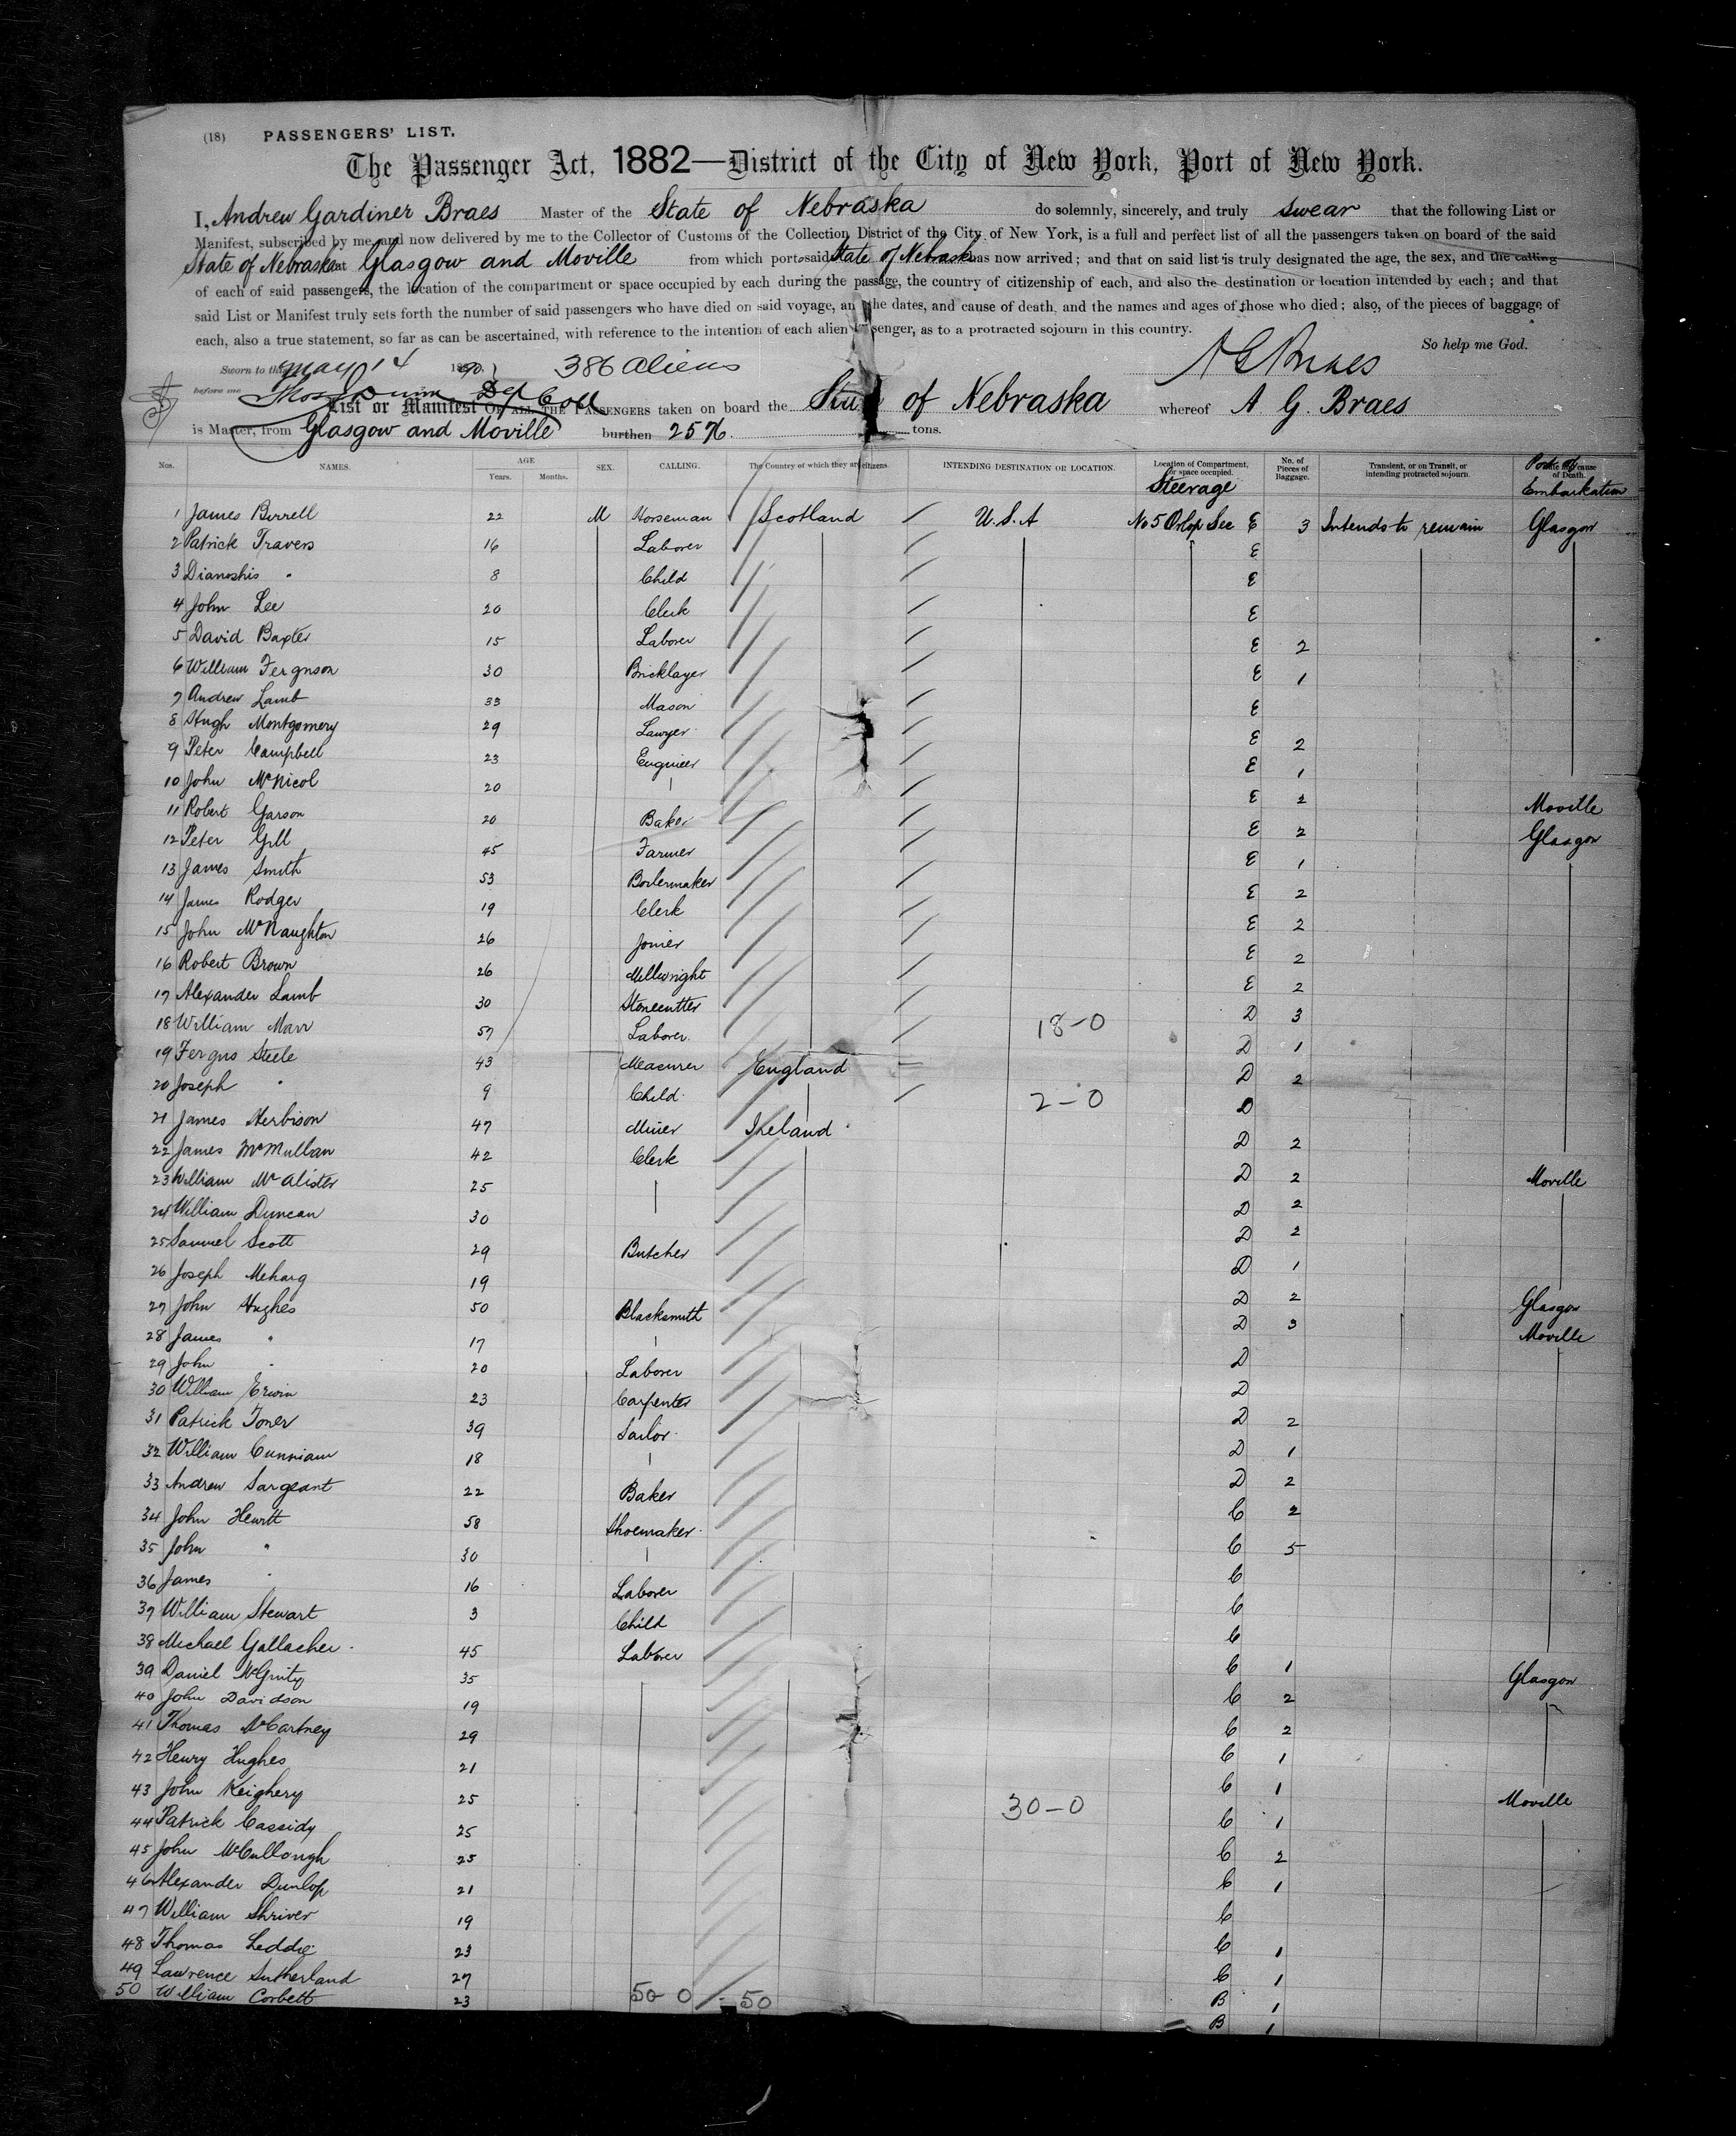 (18) PASSENGERS' LIST.
The Passenger Act, 1882—District of the City of New York, Port of New York.
I, Andrew Gardiner Braes Master of the State of Nebraska do solemnly, sincerely, and truly swear that the following List or
Manifest, subscribed by me and now delivered by me to the Collector of Customs of the Collection District of the City of New York, is a full and perfect list of all the passengers taken on board of the said
State of Nebraska at Glasgow and Moville from which ports said State of Nebraska has now arrived; and that on said list is truly designated the age, the sex, and the calling
of each of said passengers, the location of the compartment or space occupied by each during the passage, the country of citizenship of each, and also the destination or location intended by each; and that
said List or Manifest truly sets forth the number of said passengers who have died on said voyage, and the dates, and cause of death, and the names and ages of those who died; also, of the pieces of baggage of
each, also a true statement, so far as can be ascertained, with reference to the intention of each alien passenger, as to a protracted sojourn in this country.
So help me God.
Sworn to this May 14 1890 386 Aliens A G Braes
before me Dep Coll
List or Manifest OF ALL THE PASSENGERS taken on board the State of Nebraska whereof A. G. Braes
is Master, from Glasgow and Moville burthen 2576 tons.
Nos. NAMES. AGE Years. Months. SEX. CALLING. The Country of which they are citizens. INTENDING DESTINATION OR LOCATION. Location of Compartment, or space occupied. No. of Pieces of Baggage. Transient, or on Transit, or intending protracted sojourn. Port of
Steerage Embarkation
1 James Birrell 22 M Horseman Scotland U.S.A No 5 Orlop Sec E 3 Intends to remain Glasgow
2 Patrick Travers 16 Laborer E
3 " 8 Child E
4 John Lee 20 Clerk E
5 David Baxter 15 Laborer E 2
6 William Ferguson 30 Bricklayer E 1
7 Andrew Lamb 33 Mason E
8 Hugh Montgomery 29 Lawyer E 2
9 Peter Campbell 23 Engineer E 1
10 John McNicol 20 E 2 Moville
11 Robert Garson 20 Baker E 2 Glasgow
12 Peter Gill 45 Farmer E 1
13 James Smith 53 Boilermaker E 2
14 James Rodger 19 Clerk E 2
15 John McNaughton 26 Joiner E 2
16 Robert Brown 26 Millwright E 2
17 Alexander Lamb 30 Stonecutter D 3
18 William Marr 57 Laborer 18-0 D 1
19 Fergus Steele 43 Measurer England D 2
20 Joseph " 9 Child 2-0 D
21 James Herbison 47 Miner Ireland D 2
22 James McMullan 42 Clerk D 2 Moville
23 William McAlister 25 D 2
24 William Duncan 30 D 2
25 Samuel Scott 29 Butcher D 1
26 Joseph Meharg 19 D 2 Glasgow
27 John Hughes 50 Blacksmith D 3 Moville
28 James " 17 D
29 John " 20 Laborer D
30 William Erwin 23 Carpenter D 2
31 Patrick Toner 39 Sailor D 1
32 William Cunniam 18 D 2
33 Andrew Sargeant 22 Baker C 2
34 John Hewitt 58 Shoemaker C 5
35 John " 30 C
36 James " 16 Laborer C
37 William Stewart 3 Child C
38 Michael Gallacher 45 Laborer C 1 Glasgow
39 Daniel McGinty 35 C 2
40 John Davidson 19 C 2
41 Thomas McCartney 29 C 1
42 Henry Hughes 21 C 1 Moville
43 John Keighery 25 30-0 C 1
44 Patrick Cassidy 25 C 2
45 John McCullough 25 C 1
46 Alexander Dunlop 21 C
47 William Shriver 19 C 1
48 Thomas Leddie 23 C 1
49 Lawrence Sutherland 27 B 1
50 William Corbett 23 50 0 - 50 B 1